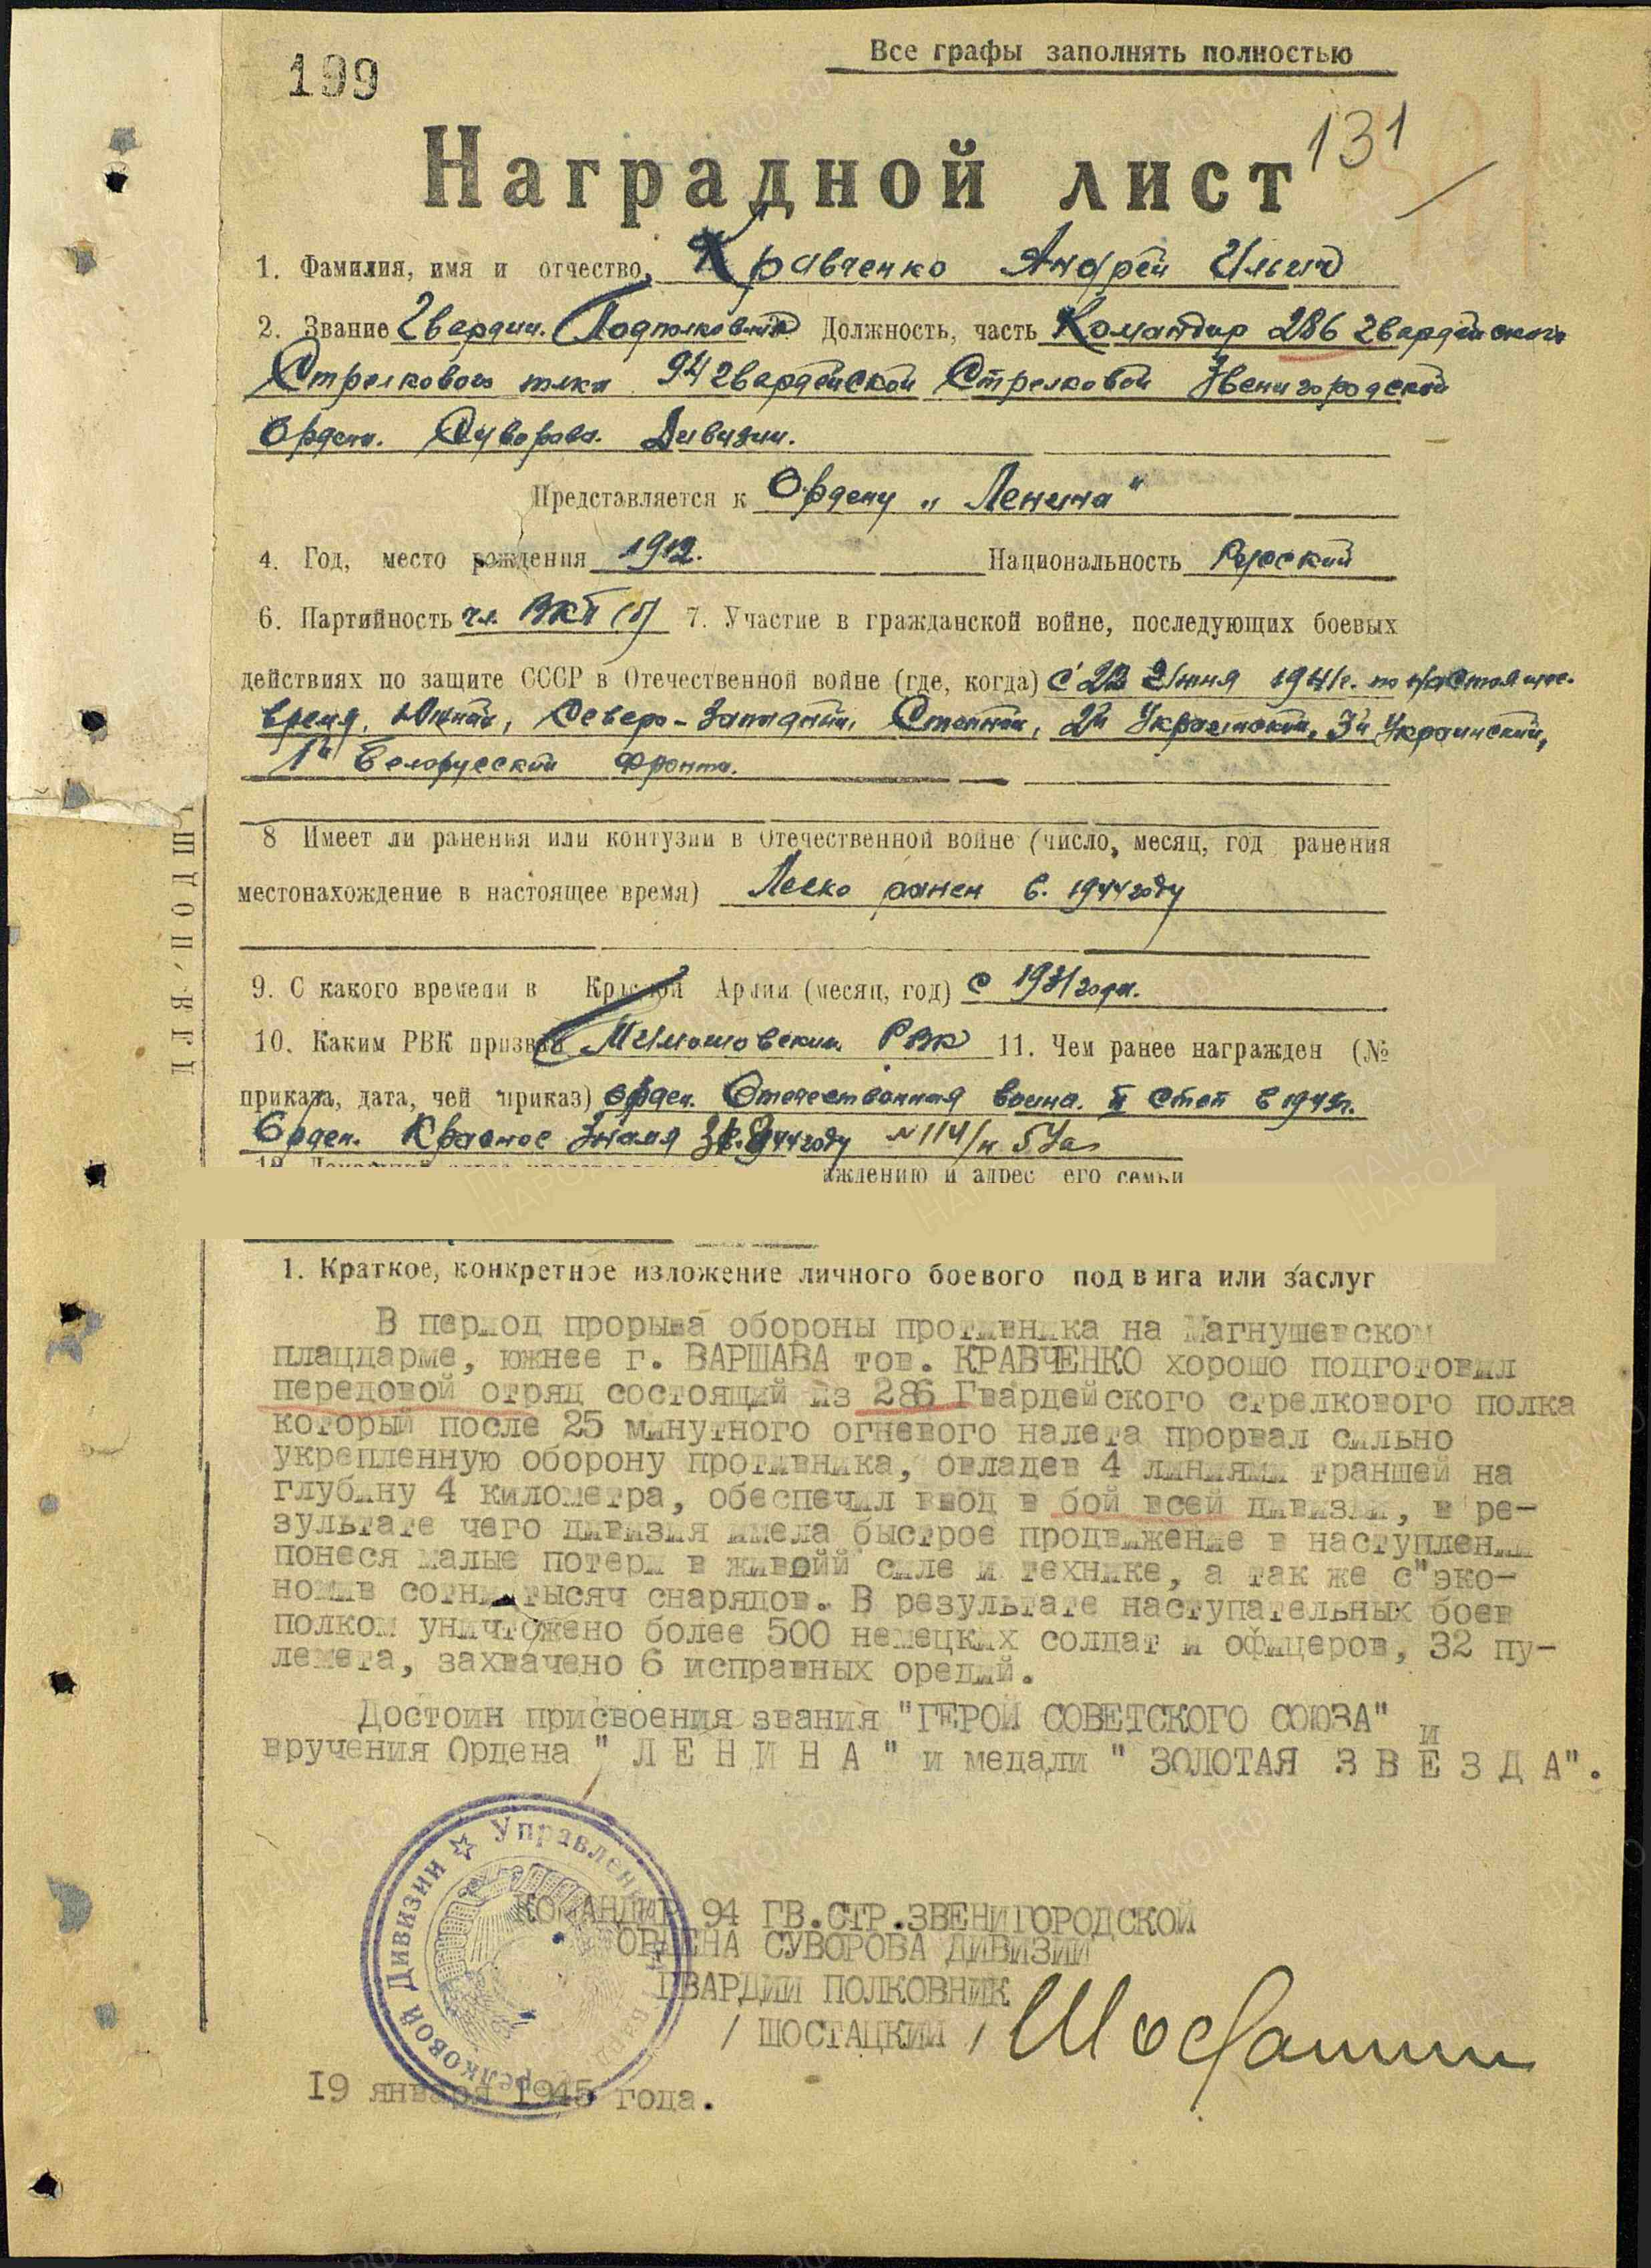 Все графы заполнять полностью
199
131
Наградной лист
1. Фамилия, имя и отчество, Кравченко Андрей Ильич
2. Звание Гвардии. Подполковник Должность, часть Командир 286 гвардейского
Стрелкового полка 94 гвардейской Стрелковой Звенигородской
Орден. Суворова. Дивизии.
Представляется к Ордену „Ленина"
4. Год, место рождения 1912. Национальность Русский
6. Партийность чл. ВКП(б) 7. Участие в гражданской войне, последующих боевых
действиях по защите СССР в Отечественной войне (где, когда) с 22 Июня 1941г. по настоящее.
время. Южный, Северо-Западный, Степной, 2й Украинский, 3й Украинский,
1й Белорусский Фронта.
8 Имеет ли ранения или контузии в Отечественной войне (число, месяц, год ранения
местонахождение в настоящее время) Легко ранен в. 1944 году
9. С какого времени в Красной Армии (месяц, год) с 1931 года.
10. Каким РВК призван РВК 11. Чем ранее награжден (№
приказа, дата, чей приказ) орден. Отечественная война. II степ в 1943г.
Орден. Красное Знамя 1944 году №114/н 5Уа
аждению и адрес его семьи
ДЛЯ ПОДШ
1. Краткое, конкретное изложение личного боевого подвига или заслуг
В период прорыва обороны противника на Магнушевском
плацдарме, южнее г. ВАРШАВА тов. КРАВЧЕНКО хорошо подготовил
передовой отряд состоящий из 286 Гвардейского стрелкового полка
который после 25 минутного огневого налета прорвал сильно
укрепленную оборону противника, овладев 4 линиями траншей на
глубину 4 километра, обеспечил ввод в бой всей дивизии, в ре-
зультате чего дивизия имела быстрое продвижение в наступлении
понеся малые потери в живойй силе и технике, а так же с"эко-
номив сотни тысяч снарядов. В результате наступательных боев
полком уничтожено более 500 немецких солдат и офицеров, 32 пу-
лемета, захвачено 6 исправных оредий.
Достоин присвоения звания "ГЕРОЙ СОВЕТСКОГО СОЮЗА" и
вручения Ордена " Л Е Н И Н А " и медали " ЗОЛОТАЯ З В Е З Д А".
Управление Стрелковой Дивизии
КОМАНДИР 94 ГВ.СТР.ЗВЕНИГОРОДСКОЙ
ОРДЕНА СУВОРОВА ДИВИЗИИ
ГВАРДИИ ПОЛКОВНИК
/ ШОСТАЦКИЙ /
I9 января 1945 года.